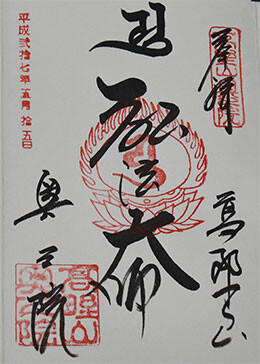 奉拝
高野山
弘法大師
奥之院
高野山
奥之院
平成弐拾七年五月拾五日